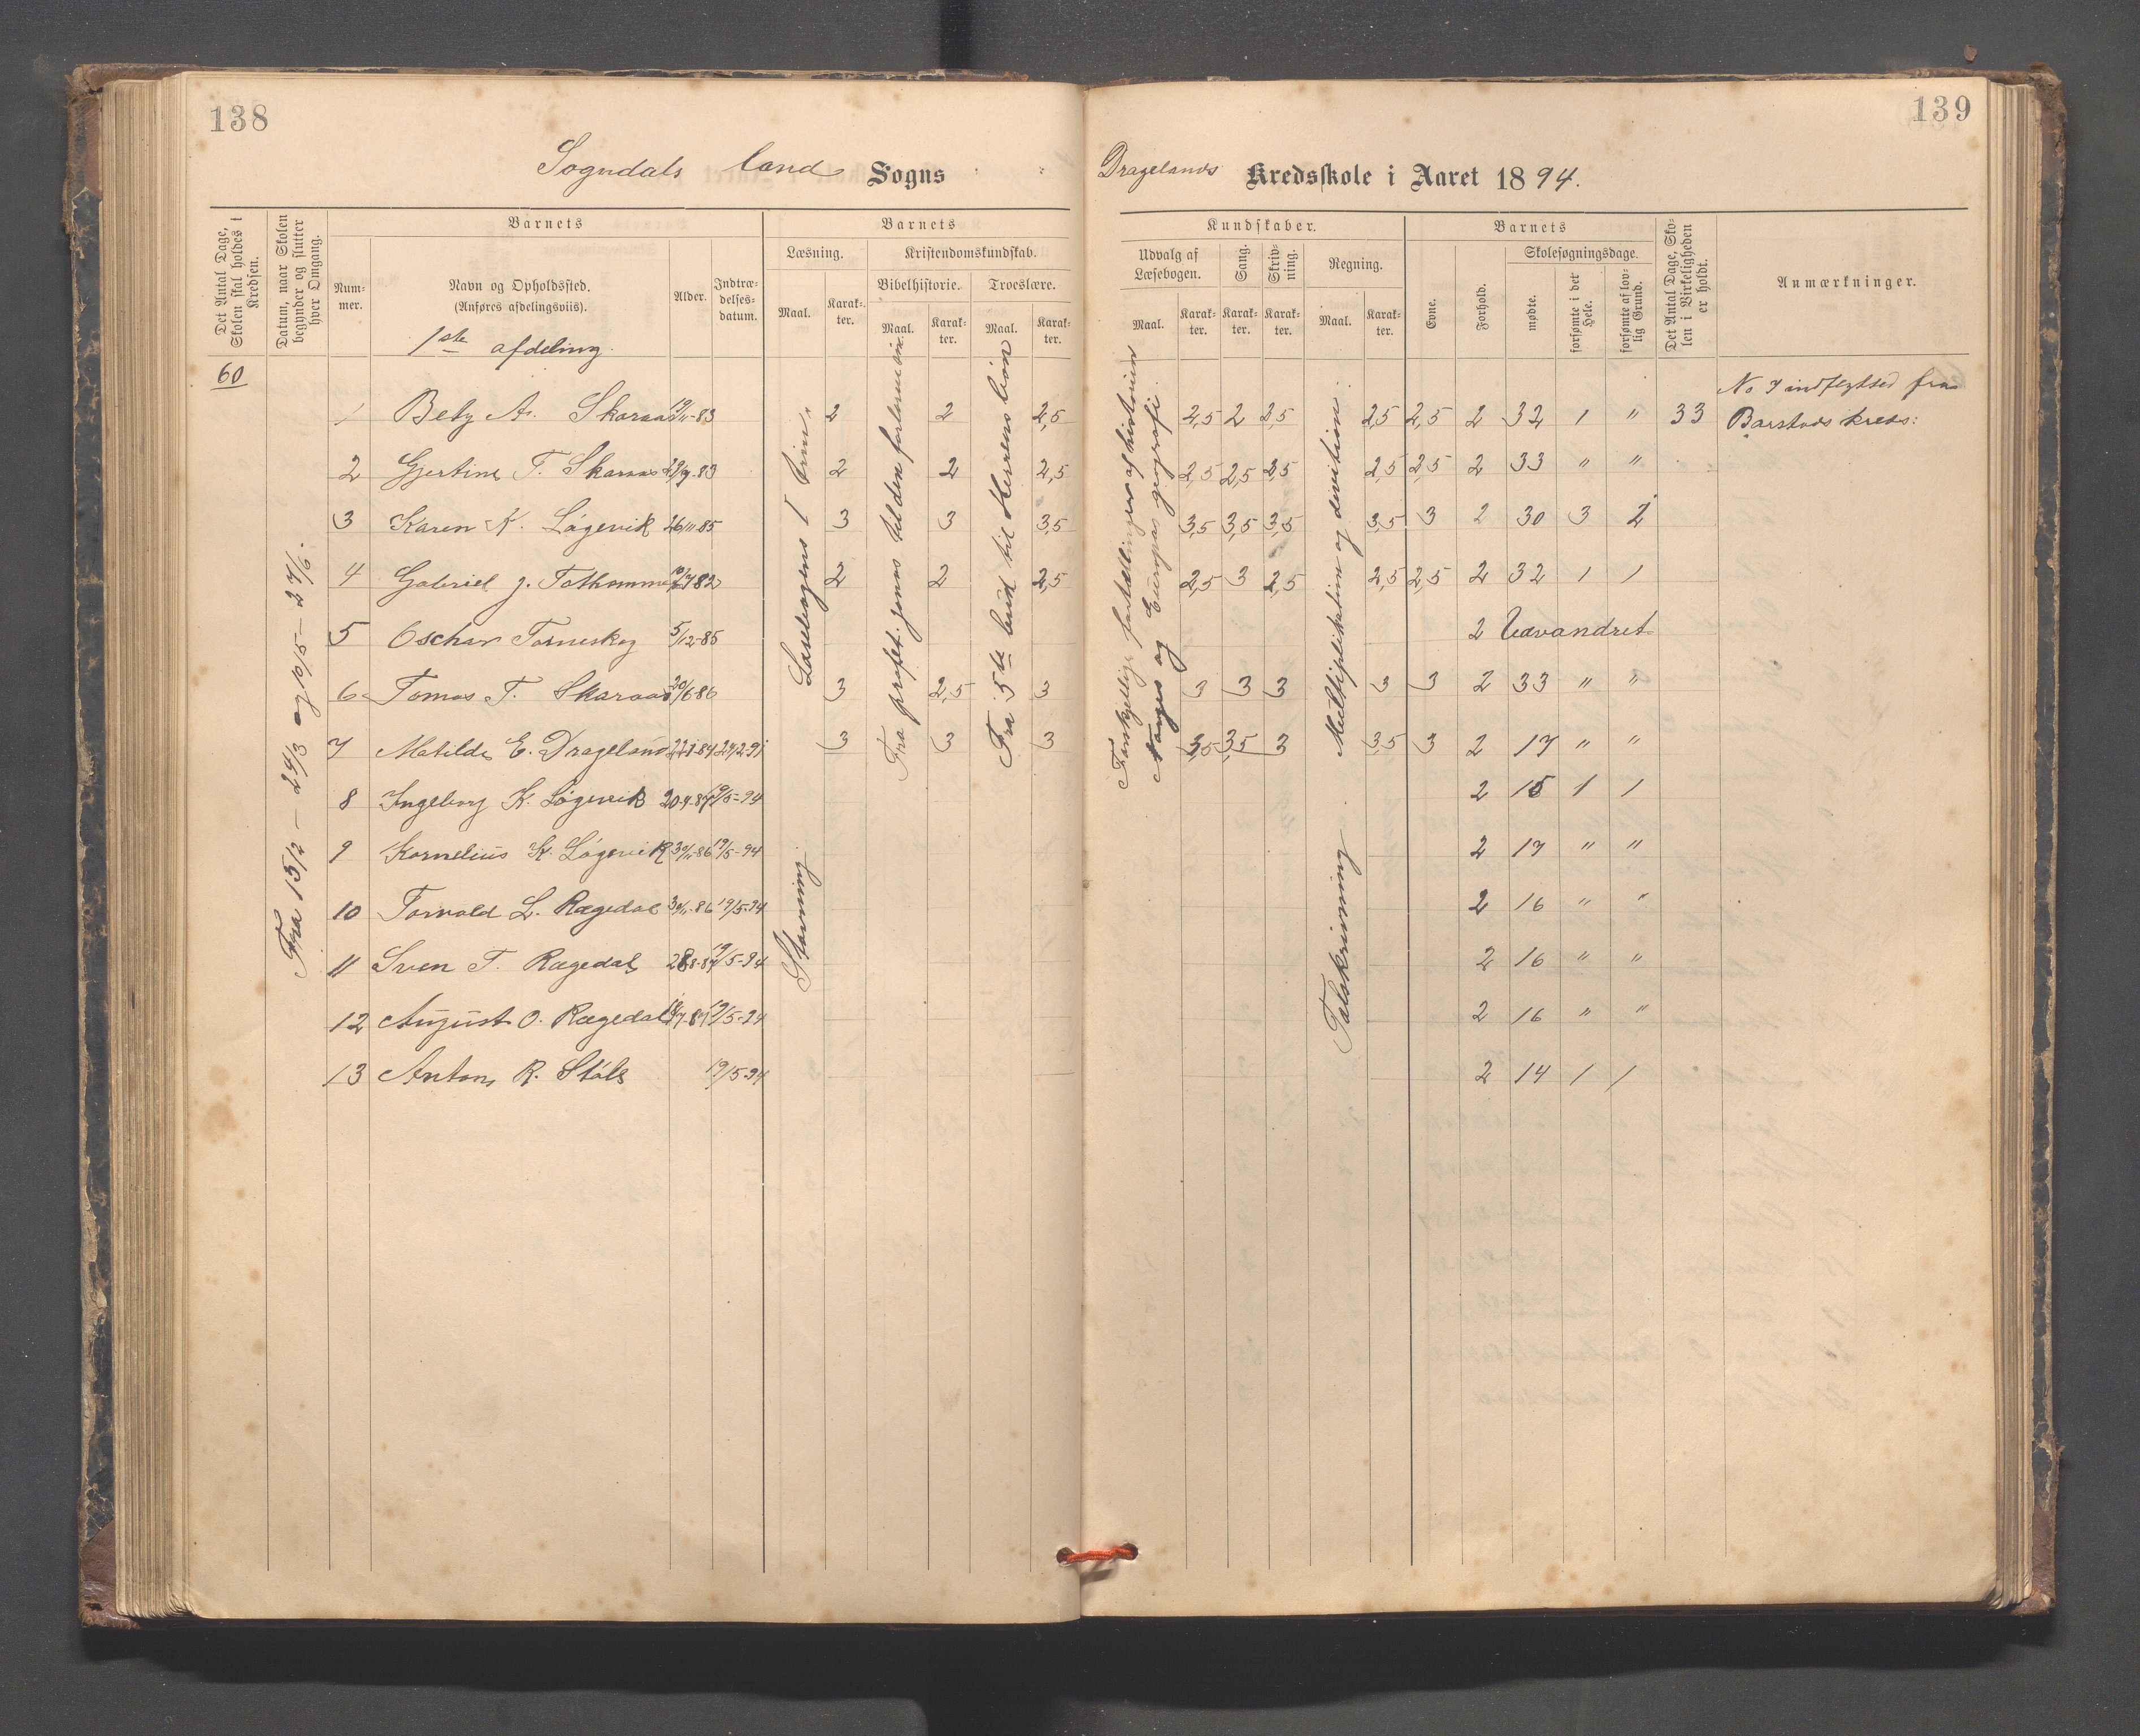 138
Sogndals land Sogns
Det Antal Dage, Skolen skal holdes i Kredsen.
Datum, naar Skolen begynder og slutter hver Omgang.
Barnets
Num-mer.
Navn og Opholdssted.
(Anføres afdelingsviis).
Alder.
Indtræ-delses-datum.
Barnets
Læsning.
Kristendomskundskab.
Maal.
Karak-ter.
Bibelhistorie.
Troeslære.
Maal.
Karak-ter.
Maal.
Karak-ter.
1ste afdeling.
60
Fra 15/2 – 24/3 og 19/5 – 27/6.
Læsebogens I trin.
Stavning
Fra profet. jonas til den forlorne søn.
Fra 5te bud til Herrens bøn
1 Bety A. Skaraas 19/11-83 2 2 2,5
2 Gjertine T. Skaraas 29/9-83 2 2 2,5
3 Karen K. Løgevik 26/11-85 3 3 3,5
4 Gabriel J. Tothammer 82 2 2 2,5
5 Oschar Torneskog 5/12-85
6 Tomas T. Skaraas 20/6-86 3 2,5 3
7 Matilde E. Drageland 22-1-84 27/2-91 3 3 3
8 Ingeborg K. Løgevik 20-4-87 19/5-94
9 Kornelius K. Løgevik 30/11-86 19/5-94
10 Torvald L. Rægedal 30/11-86 19/5-94
11 Sven T. Rægedal 28-8-87 19/5-94
12 August O. Rægedal 87 19/5-94
13 Anton R. Støle 19/5-94
139
Dragelands Kredsskole i Aaret 1894.
Kundskaber.
Udvalg af Læsebogen.
Sang.
Skriv-ning.
Regning.
Maal.
Karak-ter.
Karak-ter.
Karak-ter.
Maal.
Karak-ter.
Barnets
Evne.
Forhold.
Skolesøgningsdage.
mødte.
forsømte i det Hele.
forsømte af lov-lig Grund.
Det Antal Dage, Sko-len i Virkeligheden er holdt.
Anmærkninger.
Forskjellige fortællinger af historien
Norges og Europas geografi.
Multiplikation og division.
Talskrivning
No 7 indflytted fra
Barstads kreds:
2,5 2 2,5 2,5 2,5 2 32 1 " 33
2,5 2,5 2,5 2,5 2,5 2 33 " "
3,5 3,5 3,5 3,5 3 2 30 3 2
2,5 3 2,5 2,5 2,5 2 32 1 1
2 Udvandret
3 3 3 3 3 2 33 " "
3,5 3,5 3 3,5 3 2 17 " "
2 15 1 1
2 17 " "
2 16 " "
2 16 " "
2 16 " "
2 14 1 1